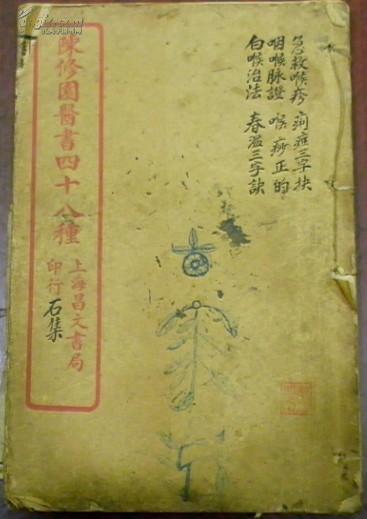 急救喉疹 痢症三字抉
咽喉脉證 喉痧正的
白喉治法 春温三字訣
陳修園醫書四十八種
上海昌文書局
印行
石集